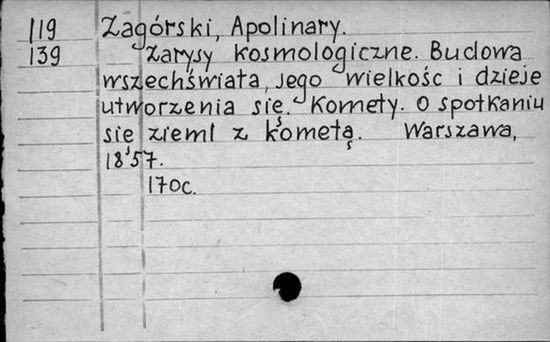 119 Zagórski, Apolinary.
139 Zarysy kosmologiczne. Budowa
wszechświata, jego wielkośc i dzieje
utworzenia się. Komety. O spotkaniu
się zieml z kometą. Warszawa,
1857.
170c.